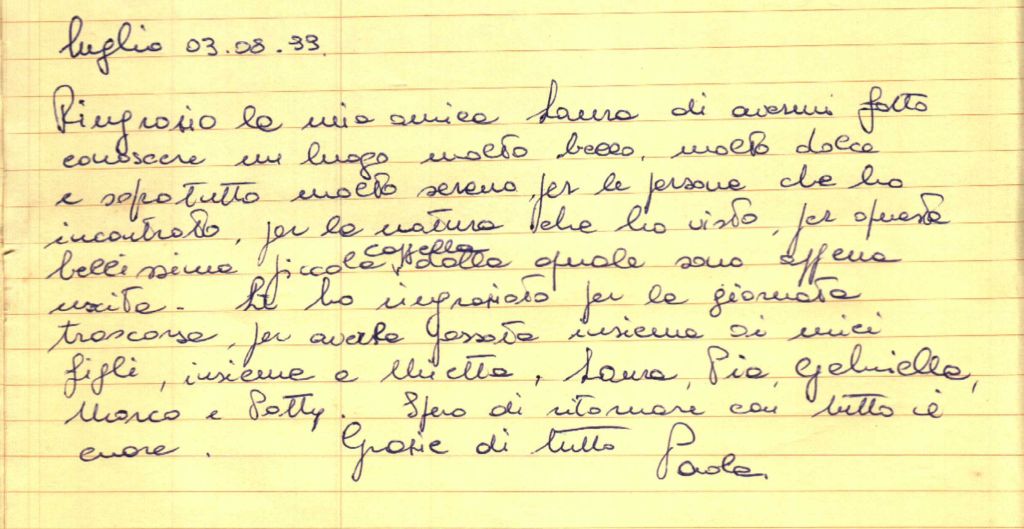 luglio 03.08.99.
Ringrazio la mia amica Laura di avermi fatto
conoscere un luogo molto bello, molto dolce
e sopratutto molto sereno, per le persone che ho
incontrato, per la natura che ho visto, per questa
bellissima piccola cappella dalla quale sono appena
uscita. Li ho ringraziato per la giornata
trascorsa, per averla passata insieme ai miei
figli, insieme a Miretta, Laura, Pia, Gabriella,
Marco e Patty. Spero di ritornare con tutto il
cuore. Grazie di tutto Paola.